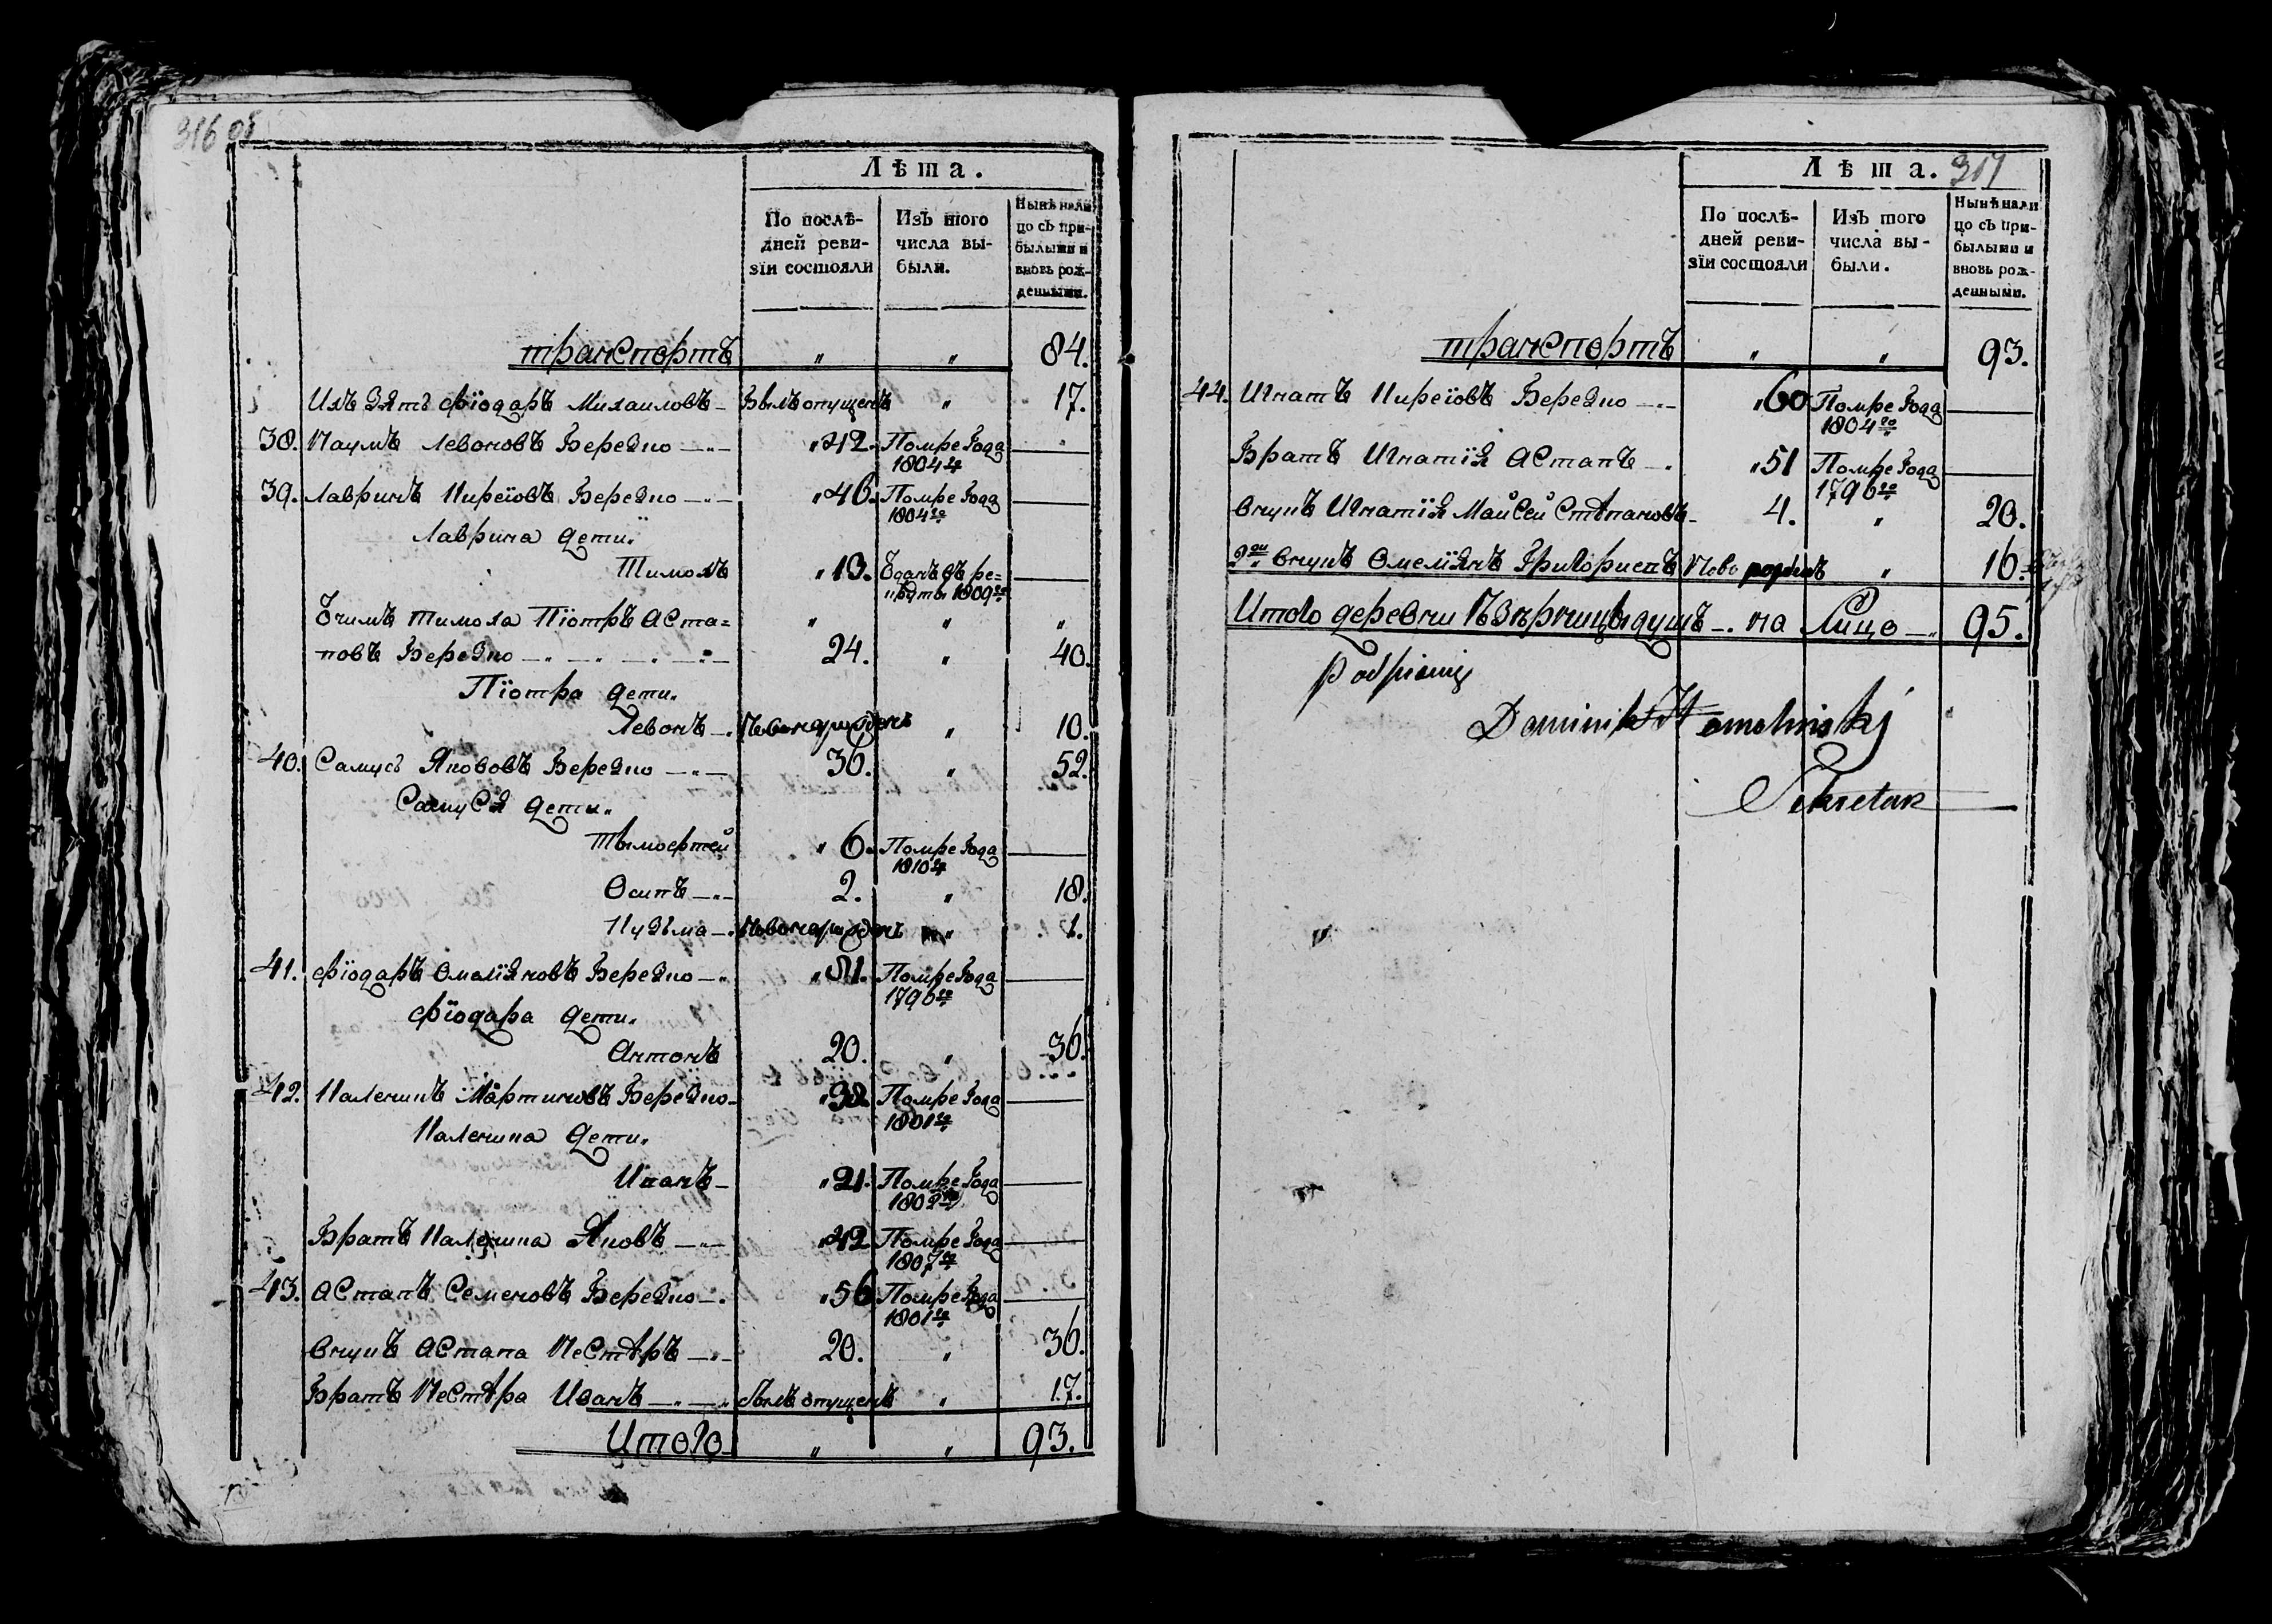 316 об
Лѣта.
По послѣ-
дней реви-
зїи состояли
Изъ того
числа вы-
были.
Нынѣ нали
цо съ при-
былыми и
вновь рож-
денными.
транспортъ " " 84.
Ихъ Зятъ Фїодаръ Михаиловъ - Былъ опущенъ " 17.
38. Наумъ Левоновъ Березко " 42. Помре Года
1804го
39. Лавринъ Кирeїовъ Березко " 46. Помре Года
1804го
Лаврина дети
Тимохъ " 13. Еданъ въ ре=
круты 1809го
Ёчимъ Тимоха Пїотръ Аста= " " "
повъ Березко 24. " 40.
Пїотра дети
Левонъ Новонарожденъ " 10.
40. Самусь Яковъ Березко 36. " 52.
Самуся дети
Тымофтей " 6. Помре Года
1810го
Осипъ 2. " 18.
Кузьма Новонарожденъ " 1.
41. Фїодаръ Омеліяновъ Березко " 51. Помре Года
1796го
Фїодара дети
Антонъ 20. " 36.
42. Каленикъ Мартиновъ Березко " Помре Года
1801го
Каленика дети
" 21. Помре Года
1802го
Братъ Каленика Яковъ " 42 Помре Года
1807го
43. Астапъ Семеновъ Березко " 56 Помре Года
1801го
Внукъ Астапа Нестѣръ 20. " 36.
Братъ Нестѣра Иванъ Былъ опущенъ " 17.
Итого " " 93.
Лѣта. 317
По послѣ-
дней реви-
зїи состояли
Изъ того
числа вы-
были.
Нынѣ нали
цо съ при-
былыми и
вновь рож-
денными.
транспортъ " " 93.
44. Игнатъ Кирeїовъ Березко " 60 Помре Года
1804го
Братъ Игнатїя Астапъ " 51 Помре Года
1796го
Внукъ Игнатїя Майсей Стѣпановъ 4. " 20.
2й Внукъ Омеліянъ Григориевъ Ново рожденъ " 16.
Итого деревни душъ на Лицо 95.
Podpisany
Dominik
Sekretarz